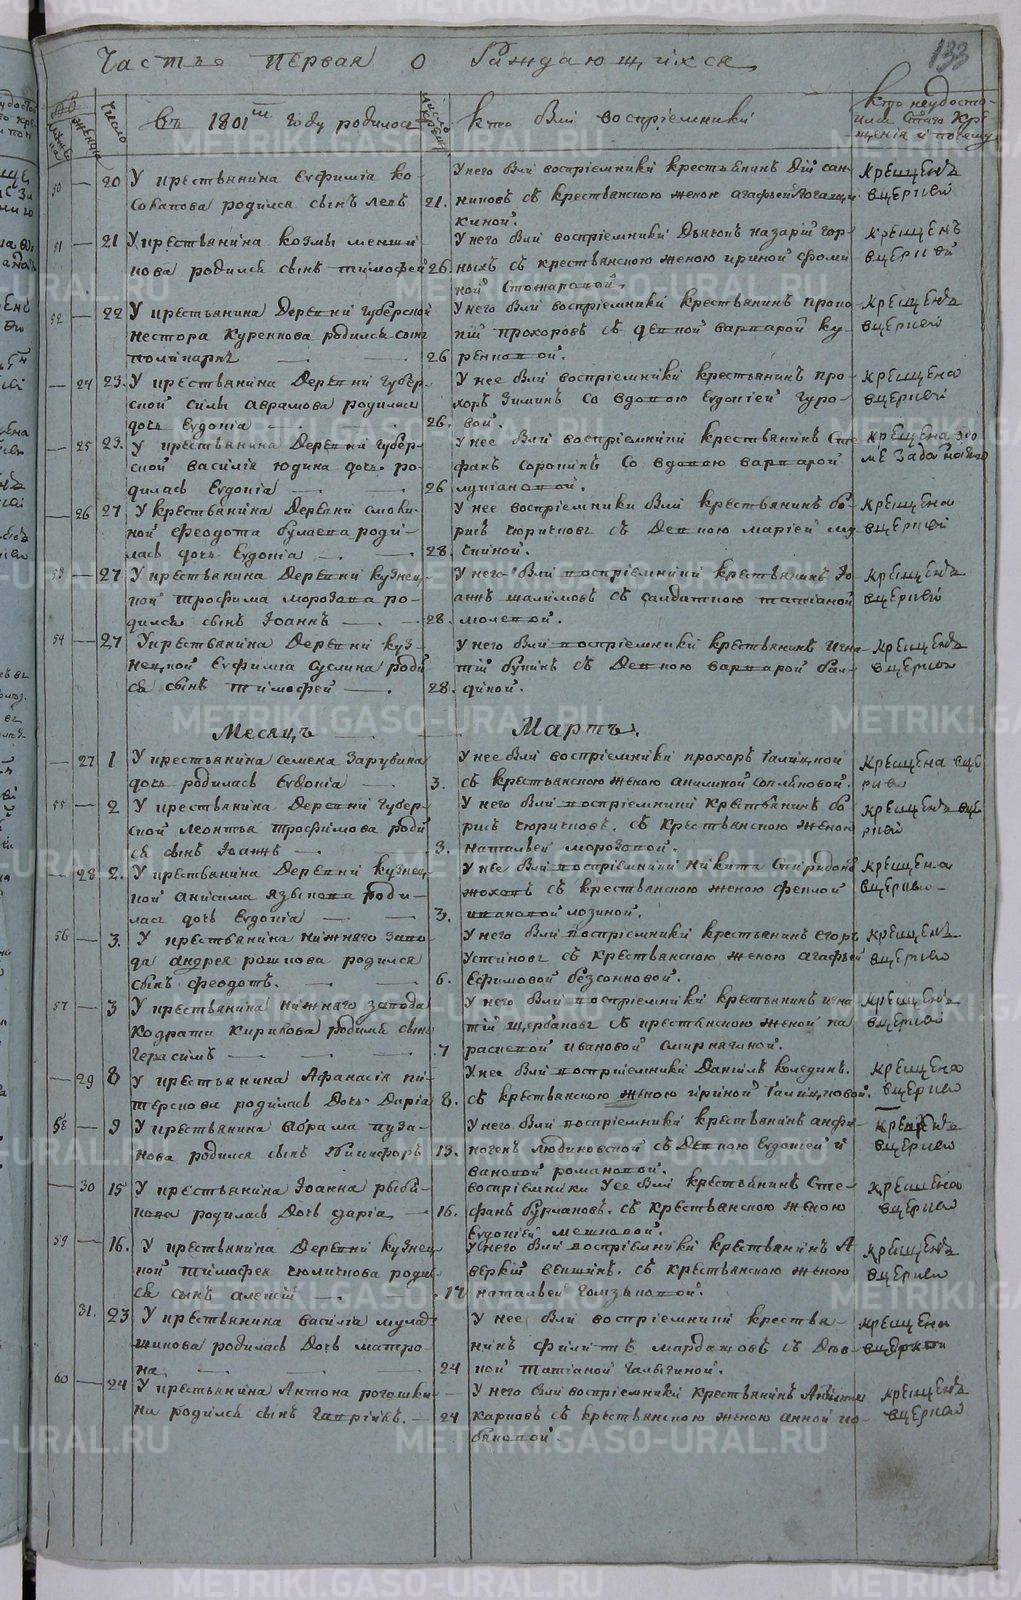 Часть первая о Раждающихся
133
число мужеска женска
Число
въ 1801м году родилось
число крещен
кто были восприемники
кто неудосто-
ился Стаго кре
щения и почему
50 — 20 У крестьянина Евфимия ко-
совапова родился сынъ левъ 21.
У него были восприемники крестьянинъ Дий сан-
никовъ съ крестьянскою женою агафьей
киной.
крещенъ
вцеркви
51 — 21 У крестьянина козмы менши
кова родился сынъ тимофей 26
У него были восприемники Дьячокъ назарий гор-
ныхъ съ крестьянскою женою ириной фоми
ной Стожаровой.
крещенъ
вцеркви
52 — 22 У крестьянина Деревни губерской
нестора куренкова родился сынъ
поликарпъ — — 26
У него были восприемники крестьянинъ проко
пий прохоровъ съ девкой варварой ку-
ренковой.
крещенъ
вцеркви
— 24 23. У крестьянина Деревни губер-
ской силы аврамова родилась
дочь Евдокия — — 26.
У нее были восприемники крестьянинъ про-
хоръ зиминъ со вдовою евдокией гуро-
вой.
крещена
вцеркви
— 25 23. У крестьянина Деревни губер-
ской василия юдина дочь ро-
дилась Евдокия — — 26
У нее были восприемники крестьянинъ Сте
фанъ сорокинъ со вдовою варварой
лукиановой.
крещена вдо
ме
— 26 27 У крестьянина Деревни слови
ной феодота булаева роди-
лась дочь Евдокия — — 28.
У нее восприемники были крестьянинъ бо-
рисъ чюричковъ съ Девкою марией му
хиной.
крещена
вцеркви
53 — 27 У крестьянина Деревни кузнец-
кой трофима морозова ро-
дился сынъ Iоаннъ — — 28.
У него были восприемники крестьянинъ Iо
аннъ шалимовъ съ салдаткою татианой
моревой.
крещенъ
вцеркви
54 — 27 У крестьянина Деревни куз
нецкой Евфимия суслина роди
ся сынъ тимофей — 28.
У него были восприемники крестьянинъ игна
тий букинъ съ Девкою варварой бал-
диной.
крещенъ
вцеркви
Месяцъ — Мартъ.
— 27 1 У крестьянина семена зарубина
дочь родилась Евдокия — 3.
У нее были восприемники прохоръ галицкой
съ крестьянскою женою акилиной сопляковой.
крещена вце
ркви
55 — 2 У крестьянина Деревни губер-
ской леонтья трофимова роди
ся сынъ Iоаннъ — 3.
У него были восприемники крестьянинъ бо
рисъ чюричковъ. съ крестьянскою женою
натальей морозовой.
крещенъ вце
ркви
— 28 2. У крестьянина Деревни кузнец
кой анисима языкова роди-
лась дочь Евдокия — — 3.
У нее были восприемники никита Спиридоно
жоховъ съ крестьянскою женою феклой
ивановой лозиной.
крещена
вцеркви-
56 — 3. У крестьянина нижняго заво
да андрея рошкова родился
сынъ феодотъ. — — 6.
У него были восприемники крестьянинъ егоръ
Устиновъ съ крестьянскою женою агафьей
Ефимовой безсонновой.
крещенъ
вцеркви
57 — 3 У крестьянина нижняго завода
кодрата кирикова родился сынъ
герасимъ — — 7
У него были восприемники крестьянинъ игна
тий щербаковъ съ крестьянскою женой па
расковой ивановой смирнягиной.
крещенъ
вцеркви
— 29 8 У крестьянина Афанасия пи-
терскова родилась Дочь Дария 8.
У нее были восприемники Даниилъ колединъ.
съ крестьянскою женою ириной галицковой.
крещена
вцеркви
58 — 9 У крестьянина аврама пуза-
кова родился сынъ Никифоръ 13.
У него были восприемники крестьянинъ анфи-
ногенъ людиновской съ Девкою евдокией и
вановой романовой.
крещенъ
вцеркви
— 30 15 У крестьянина Iоанна рыби-
кова родилась Дочь дария — 16.
восприемники У ее были крестьянинъ Сте-
фанъ бурлаковъ. съ крестьянскою женою
Евдокией мешковой.
крещена
вцеркви
59 — 16. У крестьянина Деревни кузнец
кой тимофея чюличкова роди
ся сынъ алексий — — 17
У него были восприемники крестьянинъ А
веркий векшинъ. съ крестьянскою женою
натальей голзаковой.
крещенъ
вцеркви
31. — 23 У крестьянина василия мулад
шинова родилась Дочь матро-
на — — 24
У нее были восприемники крестья-
нинъ филипъ мардашовъ съ Дев-
кой татианой галыгиной.
крещена
вцеркви
60 — 24 У крестьянина Антона рогошки
на родился сынъ гавриилъ. — 24
У него были восприемники крестьянинъ
карповъ съ крестьянскою женою анной по-
баковой.
крещенъ
вцеркви
METRIKI.GASO-URAL.RU